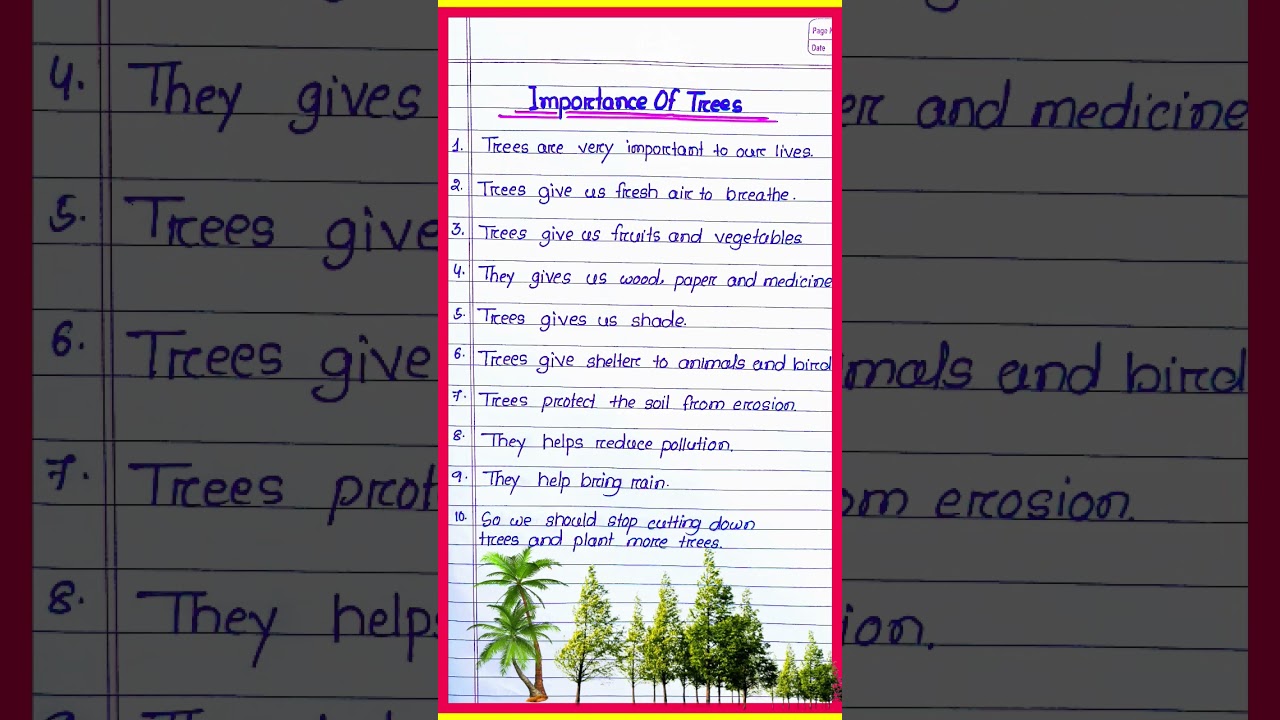 Page N
Date
Importance Of Trees
1. Trees are very important to our lives.
2. Trees give us fresh air to breathe.
3. Trees give us fruits and vegetables
4. They gives us wood, paper and medicine
5. Trees gives us shade.
6. Trees give shelter to animals and bird
7. Trees protect the soil from erosion.
8. They helps reduce pollution.
9. They help bring rain.
10. So we should stop cutting down
trees and plant more trees.